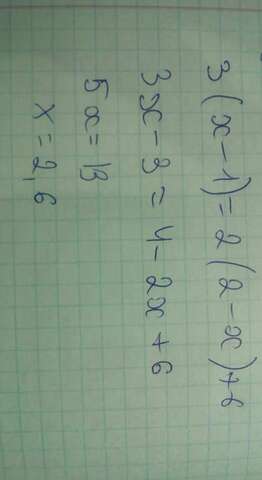 3(x-1)=2(2-x)+6
3x-3=4-2x+6
5x=13
x=2,6